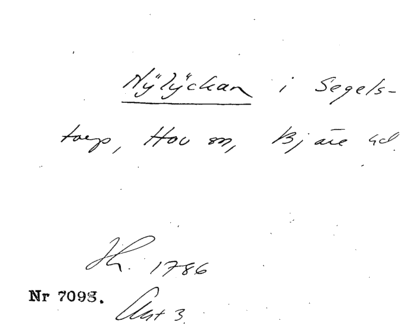 Nÿlÿckan i Segels-
torp, Hov sn, Bjäre hd.
Jh. 1786
Nr 7093. Akt 3.